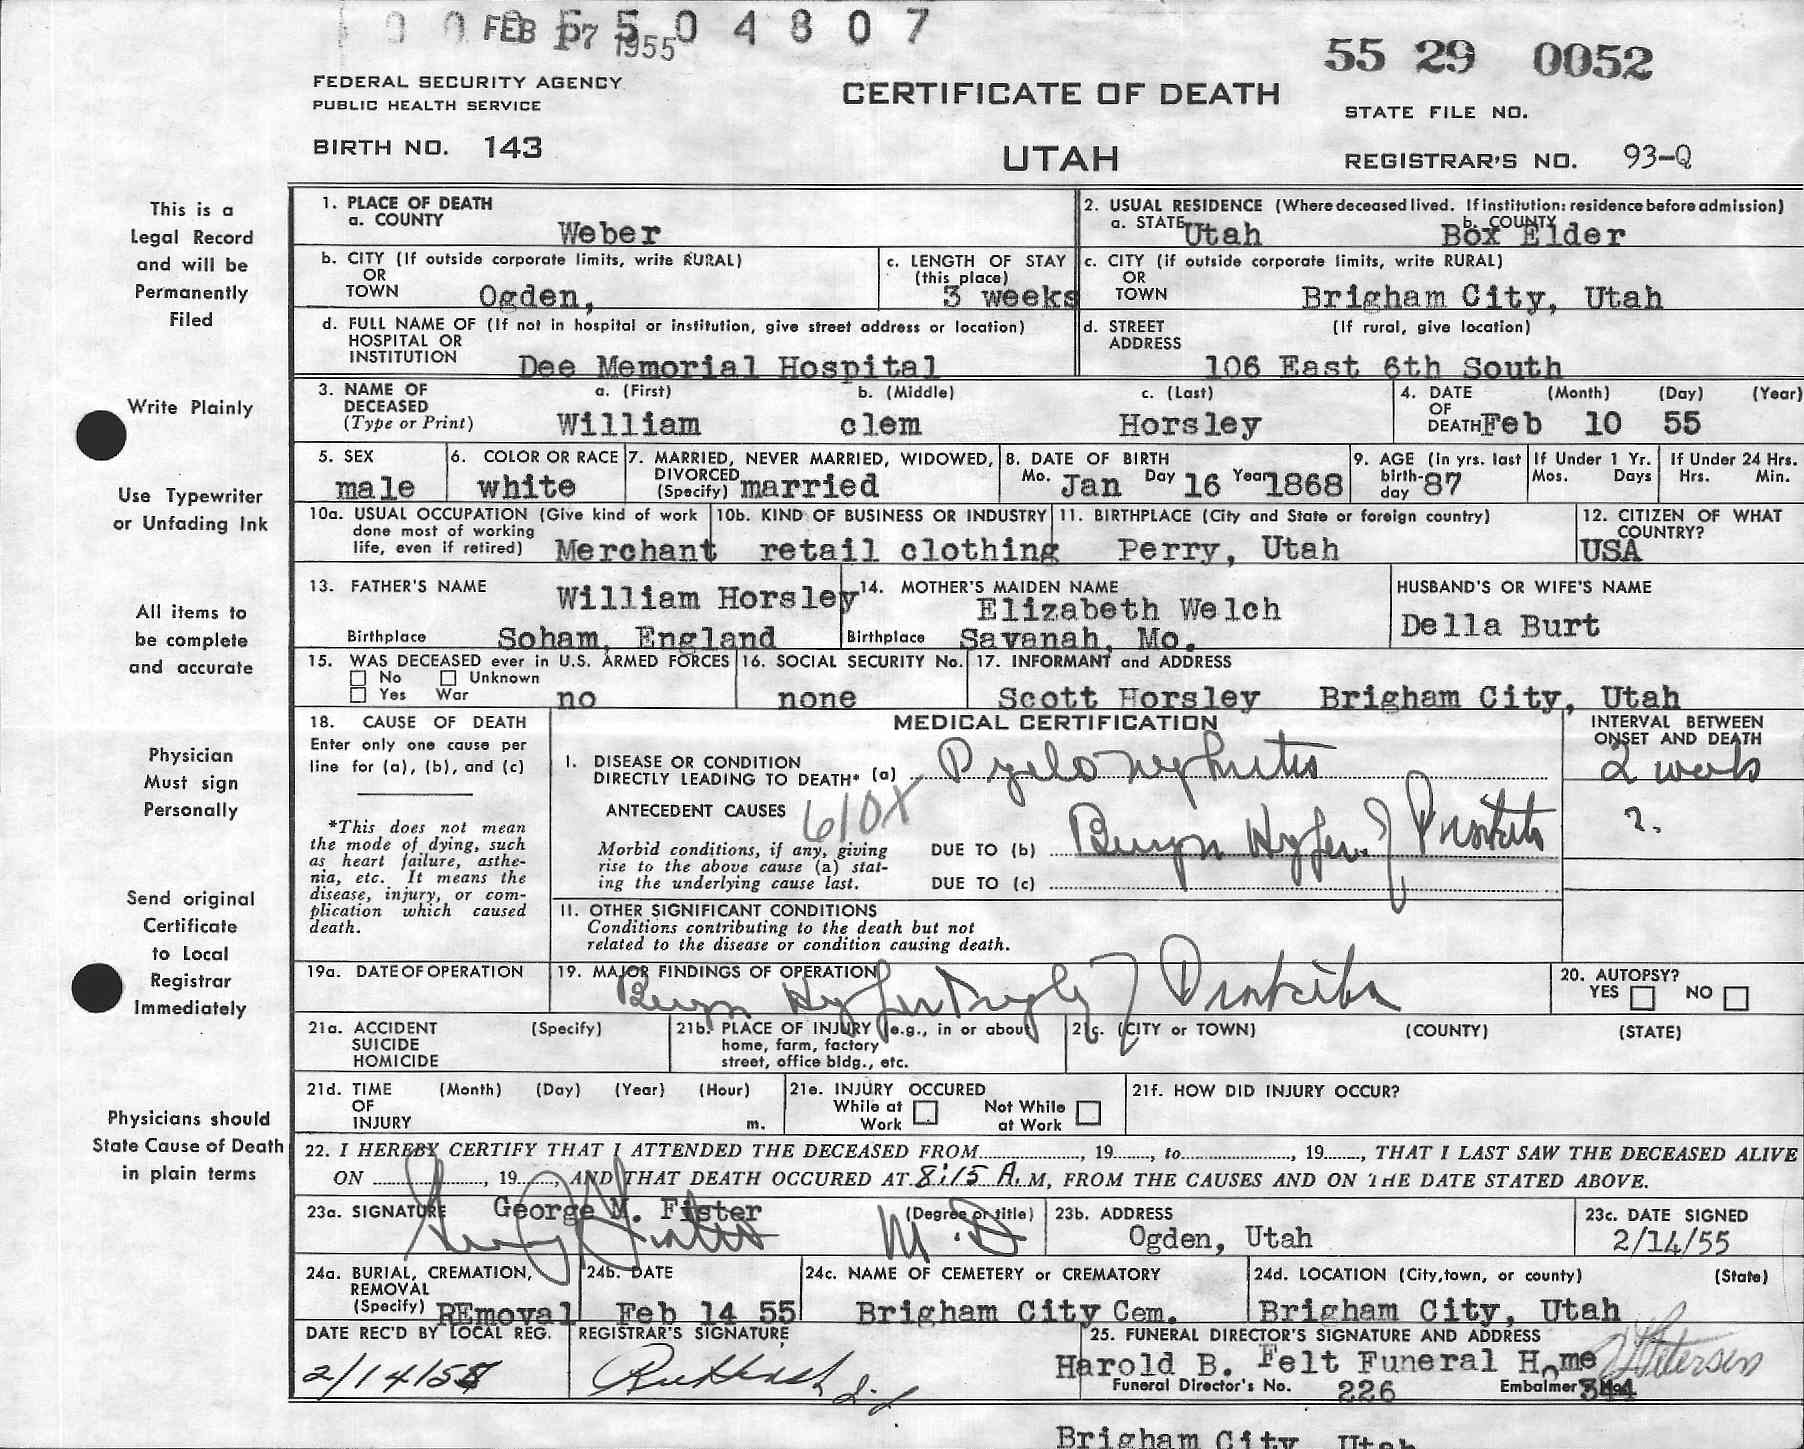 FEB 17 1955
0 4 8 0 7
55 29 0052
FEDERAL SECURITY AGENCY
PUBLIC HEALTH SERVICE
CERTIFICATE OF DEATH
STATE FILE NO.
BIRTH NO. 143
UTAH
REGISTRAR'S NO. 93-Q
This is a
Legal Record
and will be
Permanently
Filed
Write Plainly
Use Typewriter
or Unfading Ink
All items to
be complete
and accurate
Physician
Must sign
Personally
Send original
Certificate
to Local
Registrar
Immediately
Physicians should
State Cause of Death
in plain terms
1. PLACE OF DEATH
a. COUNTY Weber
2. USUAL RESIDENCE (Where deceased lived. If institution: residence before admission)
a. STATE Utah b. COUNTY Box Elder
b. CITY (If outside corporate limits, write RURAL)
OR
TOWN Ogden,
c. LENGTH OF STAY
(this place)
3 weeks
c. CITY (if outside corporate limits, write RURAL)
OR
TOWN Brigham City, Utah
d. FULL NAME OF (If not in hospital or institution, give street address or location)
HOSPITAL OR
INSTITUTION Dee Memorial Hospital
d. STREET (If rural, give location)
ADDRESS
106 East 6th South
3. NAME OF a. (First) b. (Middle) c. (Last)
DECEASED
(Type or Print) William clem Horsley
4. DATE (Month) (Day) (Year)
OF
DEATH Feb 10 55
5. SEX
male
6. COLOR OR RACE
white
7. MARRIED, NEVER MARRIED, WIDOWED,
DIVORCED
(Specify) married
8. DATE OF BIRTH
Mo. Jan Day 16 Year 1868
9. AGE (in yrs. last
birth-
day 87
If Under 1 Yr.
Mos. Days
If Under 24 Hrs.
Hrs. Min.
10a. USUAL OCCUPATION (Give kind of work
done most of working
life, even if retired) Merchant
10b. KIND OF BUSINESS OR INDUSTRY
retail clothing
11. BIRTHPLACE (City and State or foreign country)
Perry, Utah
12. CITIZEN OF WHAT
COUNTRY?
USA
13. FATHER'S NAME William Horsley
Birthplace Soham, England
14. MOTHER'S MAIDEN NAME
Elizabeth Welch
Birthplace Savanah, Mo.
HUSBAND'S OR WIFE'S NAME
Della Burt
15. WAS DECEASED ever in U.S. ARMED FORCES
No Unknown
Yes War no
16. SOCIAL SECURITY No.
none
17. INFORMANT and ADDRESS
Scott Horsley Brigham City, Utah
18. CAUSE OF DEATH
Enter only one cause per
line for (a), (b), and (c)
*This does not mean
the mode of dying, such
as heart failure, asthe-
nia, etc. It means the
disease, injury, or com-
plication which caused
death.
MEDICAL CERTIFICATION
INTERVAL BETWEEN
ONSET AND DEATH
I. DISEASE OR CONDITION
DIRECTLY LEADING TO DEATH* (a) Pyelo nephritis
2 weeks
ANTECEDENT CAUSES 610X
Morbid conditions, if any, giving
rise to the above cause (a) stat-
ing the underlying cause last.
DUE TO (b)
?.
DUE TO (c)
II. OTHER SIGNIFICANT CONDITIONS
Conditions contributing to the death but not
related to the disease or condition causing death.
19a. DATE OF OPERATION
19. MAJOR FINDINGS OF OPERATION
20. AUTOPSY?
YES NO
21a. ACCIDENT (Specify)
SUICIDE
HOMICIDE
21b. PLACE OF INJURY (e.g., in or about
home, farm, factory
street, office bldg., etc.
21c. (CITY or TOWN) (COUNTY) (STATE)
21d. TIME (Month) (Day) (Year) (Hour)
OF
INJURY m.
21e. INJURY OCCURED
While at Not While
Work at Work
21f. HOW DID INJURY OCCUR?
22. I HEREBY CERTIFY THAT I ATTENDED THE DECEASED FROM, 19, to, 19, THAT I LAST SAW THE DECEASED ALIVE
ON, 19, AND THAT DEATH OCCURED AT 8:15 A.M, FROM THE CAUSES AND ON THE DATE STATED ABOVE.
23a. SIGNATURE George M. Fister (Degree or title)
M.D
23b. ADDRESS
Ogden, Utah
23c. DATE SIGNED
2/14/55
24a. BURIAL, CREMATION,
REMOVAL
(Specify) REmoval
24b. DATE
Feb 14 55
24c. NAME OF CEMETERY or CREMATORY
Brigham City Cem.
24d. LOCATION (City, town, or county) (State)
Brigham City, Utah
DATE REC'D BY LOCAL REG.
2/14/55
REGISTRAR'S SIGNATURE
25. FUNERAL DIRECTOR'S SIGNATURE AND ADDRESS
Harold B. Felt Funeral Home
Funeral Director's No. 226 Embalmer's No.
Brigham City, Utah